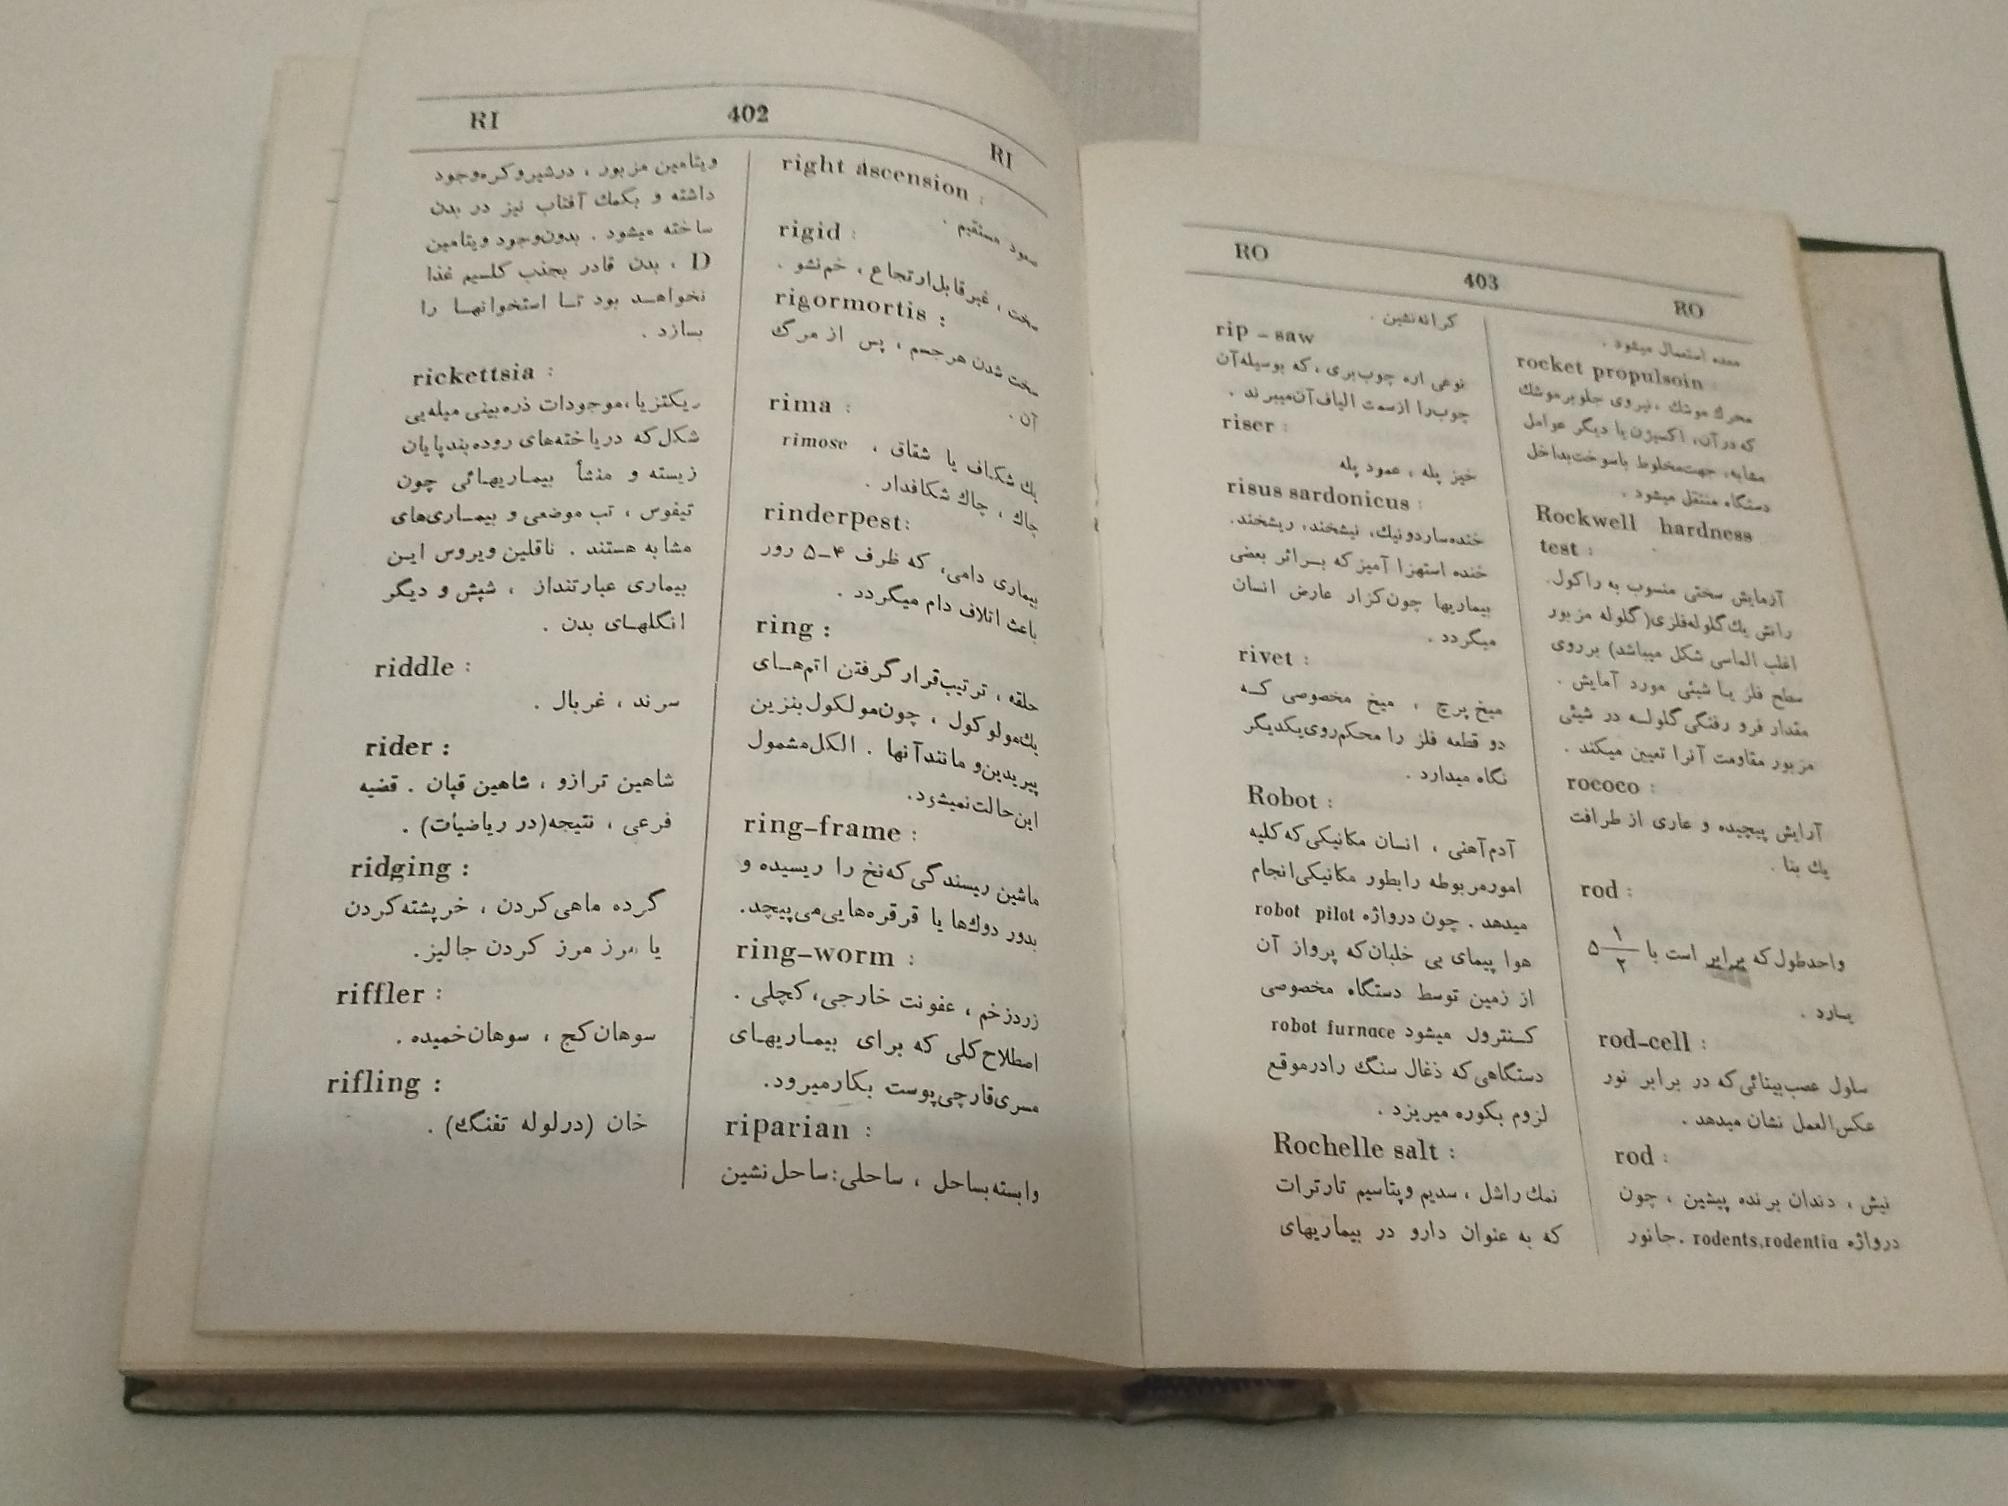 RI 402 RI
ویتامین مزبور ، درشیروکره‌وجود
داشته و بکمك آفتاب نیز در بدن
ساخته میشود . بدون‌وجود ویتامین
D ، بدن قادر بجذب کلسیم غذا
نخواهد بود تا استخوانها را
بسازد .
rickettsia :
ریکتزیا،موجودات ذره‌بینی میله‌یی
شکل‌که دریاخته‌های روده‌بندپایان
زیسته و منشأ بیماریهائی چون
تیفوس ، تب موضعی و بیماری‌های
مشابه هستند . ناقلین ویروس این
بیماری عبارتنداز ، شپش و دیگر
انگلهای بدن .
riddle :
سرند ، غربال .
rider :
شاهین ترازو ، شاهین قپان . قضیه
فرعی ، نتیجه(در ریاضیات) .
ridging :
گرده ماهی‌کردن ، خرپشته‌کردن
یا مرز مرز کردن جالیز.
riffler :
سوهان‌کج ، سوهان‌خمیده .
rifling :
خان (درلوله تفنگ) .
right ascension :
صعود مستقیم .
rigid :
سخت ، غیرقابل‌ارتجاع ، خم‌نشو .
rigormortis :
سخت شدن هرجسم ، پس از مرگ
آن .
rima :
یك شکاف یا شقاق ، rimose
چاك ، چاك شکافدار .
rinderpest:
بیماری دامی، که ظرف ۴–۵ رور
باعث اتلاف دام میگردد .
ring :
حلقه ، ترتیب‌قرارگرفتن اتم‌های
یك‌مولوکول ، چون‌مولکول‌بنزین
پیریدین‌و مانندآنها . الکل‌مشمول
این‌حالت‌نمیشود.
ring–frame :
ماشین ریسندگی‌که‌نخ را ریسیده و
بدور دوك‌ها یا قرقره‌هایی‌می‌پیچد.
ring–worm :
زردزخم ، عفونت خارجی،کچلی .
اصطلاح‌کلی که برای بیماریهای
مسری‌قارچی‌پوست بکارمیرود.
riparian :
وابسته‌بساحل ، ساحلی:ساحل‌نشین
RO 403 RO
کرانه‌نشین .
rip – saw
نوعی اره چوب‌بری ،که بوسیله‌آن
چوب‌را ازسمت الیاف‌آن‌میبرند .
riser :
خیز پله ، عمود پله
risus sardonicus :
خنده‌ساردونیك، نیشخند، ریشخند.
خنده استهزا آمیزکه براثر بعضی
بیماریها چون‌کزار عارض انسان
میگردد .
rivet :
میخ پرچ ، میخ مخصوصی که
دو قطعه فلز را محکم‌روی‌یکدیگر
نگاه میدارد .
Robot :
آدم‌آهنی ، انسان مکانیکی‌که کلیه
امورمربوطه رابطور مکانیکی‌انجام
میدهد . چون درواژه robot pilot
هوا پیمای بی خلبان‌که پرواز آن
از زمین توسط دستگاه مخصوصی
کنترول میشود robot furnace
دستگاهی‌که ذغال سنگ رادرموقع
لزوم بکوره میریزد .
Rochelle salt :
نمك راشل ، سدیم وپتاسیم تارترات
که به عنوان دارو در بیماریهای
معده استعمال میشود .
rocket propulsoin :
محرك موشك ،نیروی جلوبرموشك
که درآن، اکسیژن یا دیگر عوامل
مشابه، جهت‌مخلوط باسوخت‌بداخل
دستگاه منتقل میشود .
Rockwell hardness
test :
آزمایش سختی منسوب به راکول.
رانش یك‌گلوله‌فلزی(گلوله مزبور
اغلب الماسی شکل میباشد) برروی
سطح فلز یا شیئی مورد آمایش .
مقدار فرو رفتگی‌گلوله در شیئی
مزبور مقاومت آنرا تعیین میکند .
rococo :
آرایش پیچیده و عاری از ظرافت
یك بنا .
rod :
واحدطول‌که برابر است با ۵ ۱/۲
یارد .
rod–cell :
سلول عصب‌بینائی‌که در برابر نور
عکس‌العمل نشان میدهد .
rod :
نیش ، دندان برنده پیشین ، چون
درواژه rodents,rodentia .جانور